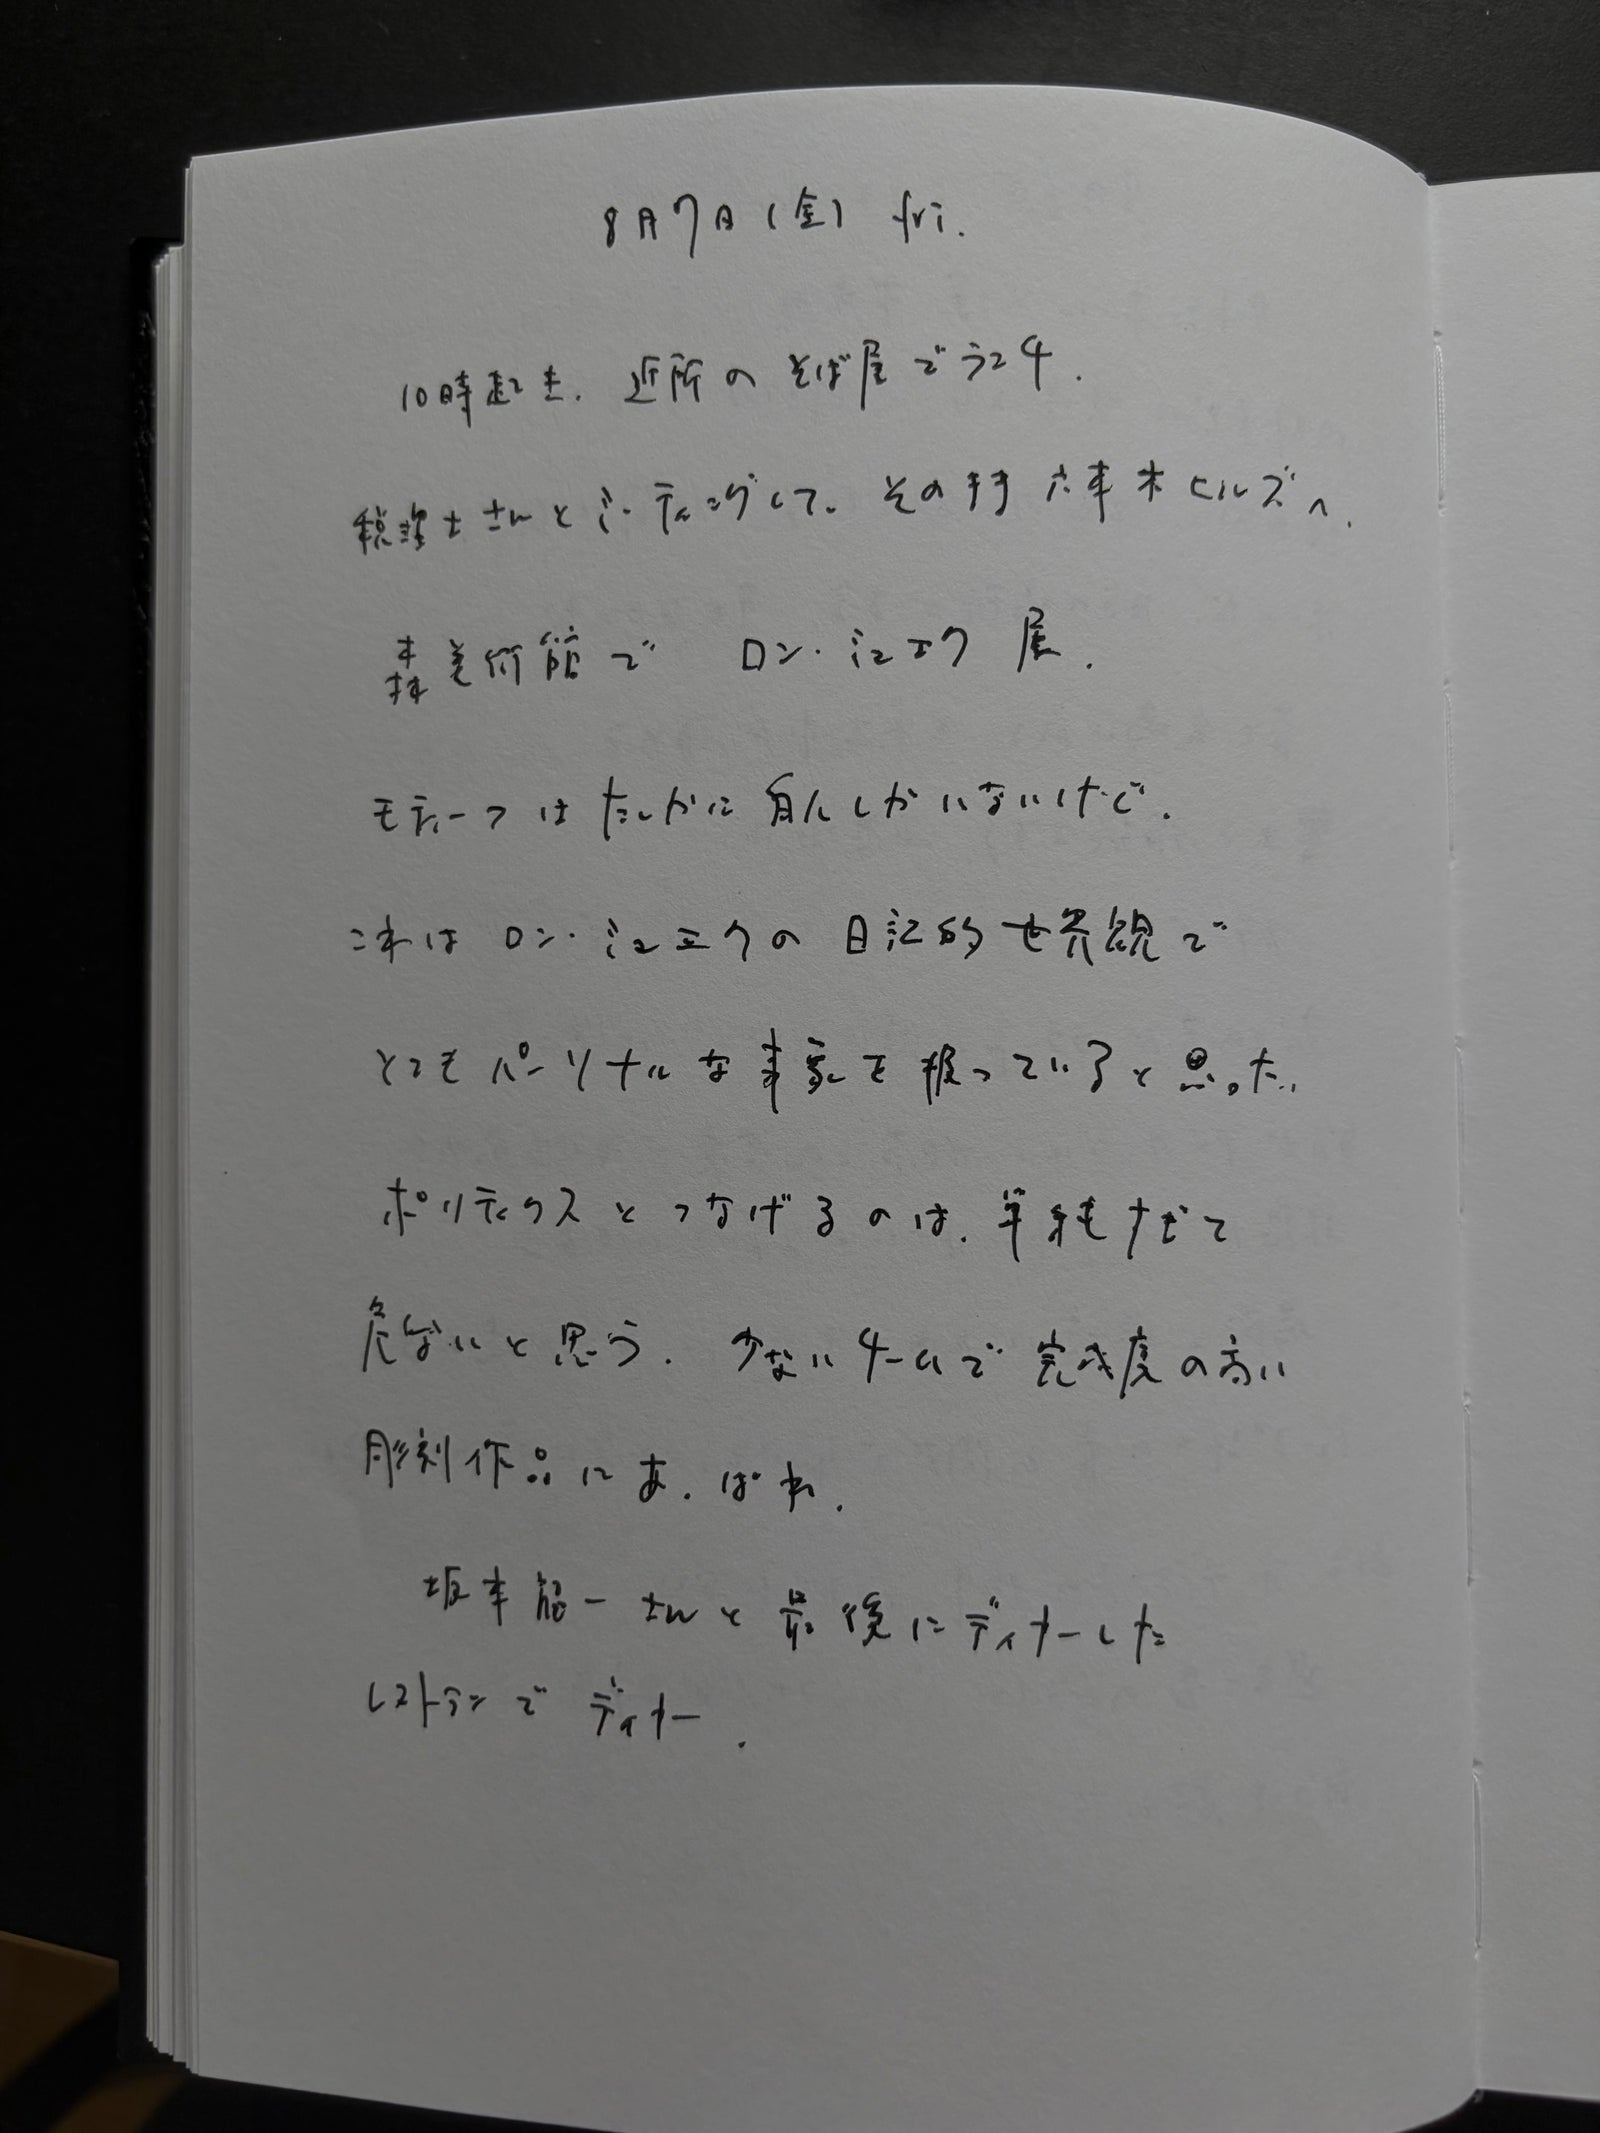 8月7日(金) fri.
10時起き. 近所のそば屋でランチ.
税理士さんとミーティングして. その手 六本木ヒルズへ.
森美術館で ロン・ミュエク展.
モティーフはたしかに白人しかいないけど.
これはロン・ミュエクの日記的世界観で
とてもパーソナルな事象を扱っていると思った.
ポリティクスとつなげるのは. 単純すぎて
危ないと思う. 少ないチームで完成度の高い
彫刻作品にあっぱれ.
坂本龍一さんと最後にディナーした
レストランでディナー.